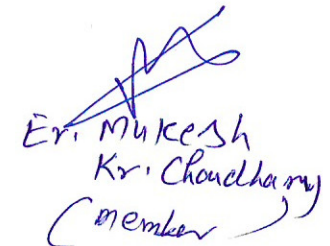 Er. Mukesh
Kr. Choudhary
(Member)